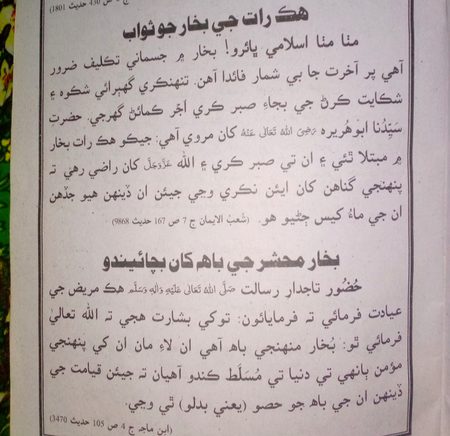 ج 7 ص 430 حديث 1801)
هڪ رات جي بخار جو ثواب
مٺا مٺا اسلامي ڀائرو! بخار ۾ جسماني تڪليف ضرور
آهي پر آخرت جا بي شمار فائدا آهن. تنهنڪري گهبرائي شڪوه ۽
شڪايت ڪرڻ جي بجاءِ صبر ڪري اَجَر ڪمائڻ گهرجي. حضرت
سَيِّدُنا ابوهُريره رَضِیَ اللهُ تَعَالٰی عَنْهُ کان مروي آهي: جيڪو هڪ رات بخار
۾ مبتلا ٿئي ۽ ان تي صبر ڪري ۽ الله عَزَّوَجَلَّ کان راضي رهي ته
پنهنجي گناهن کان ايئن نڪري وڃي جيئن ان ڏينهن هيو جڏهن
ان جي ماءُ کيس ڄڻيو هو. (شُعبُ الايمان ج 7 ص 167 حديث 9868)
بخار محشر جي باهه کان بچائيندو
حُضُور تاجدارِ رسالت صَلَّى اللهُ تَعَالٰی عَلَيْهِ وَاٰلِهٖ وَسَلَّم هڪ مريض جي
عيادت فرمائي ته فرمايائون: توکي بشارت هجي ته الله تعاليٰ
فرمائي ٿو: بُخار منهنجي باهه آهي ان لاءِ مان ان کي پنهنجي
مؤمن ٻانهي تي دنيا تي مُسَلَّط ڪندو آهيان ته جيئن قيامت جي
ڏينهن ان جي باهه جو حصو (يعني بدلو) ٿي وڃي.
(ابن ماجه ج 4 ص 105 حديث 3470)